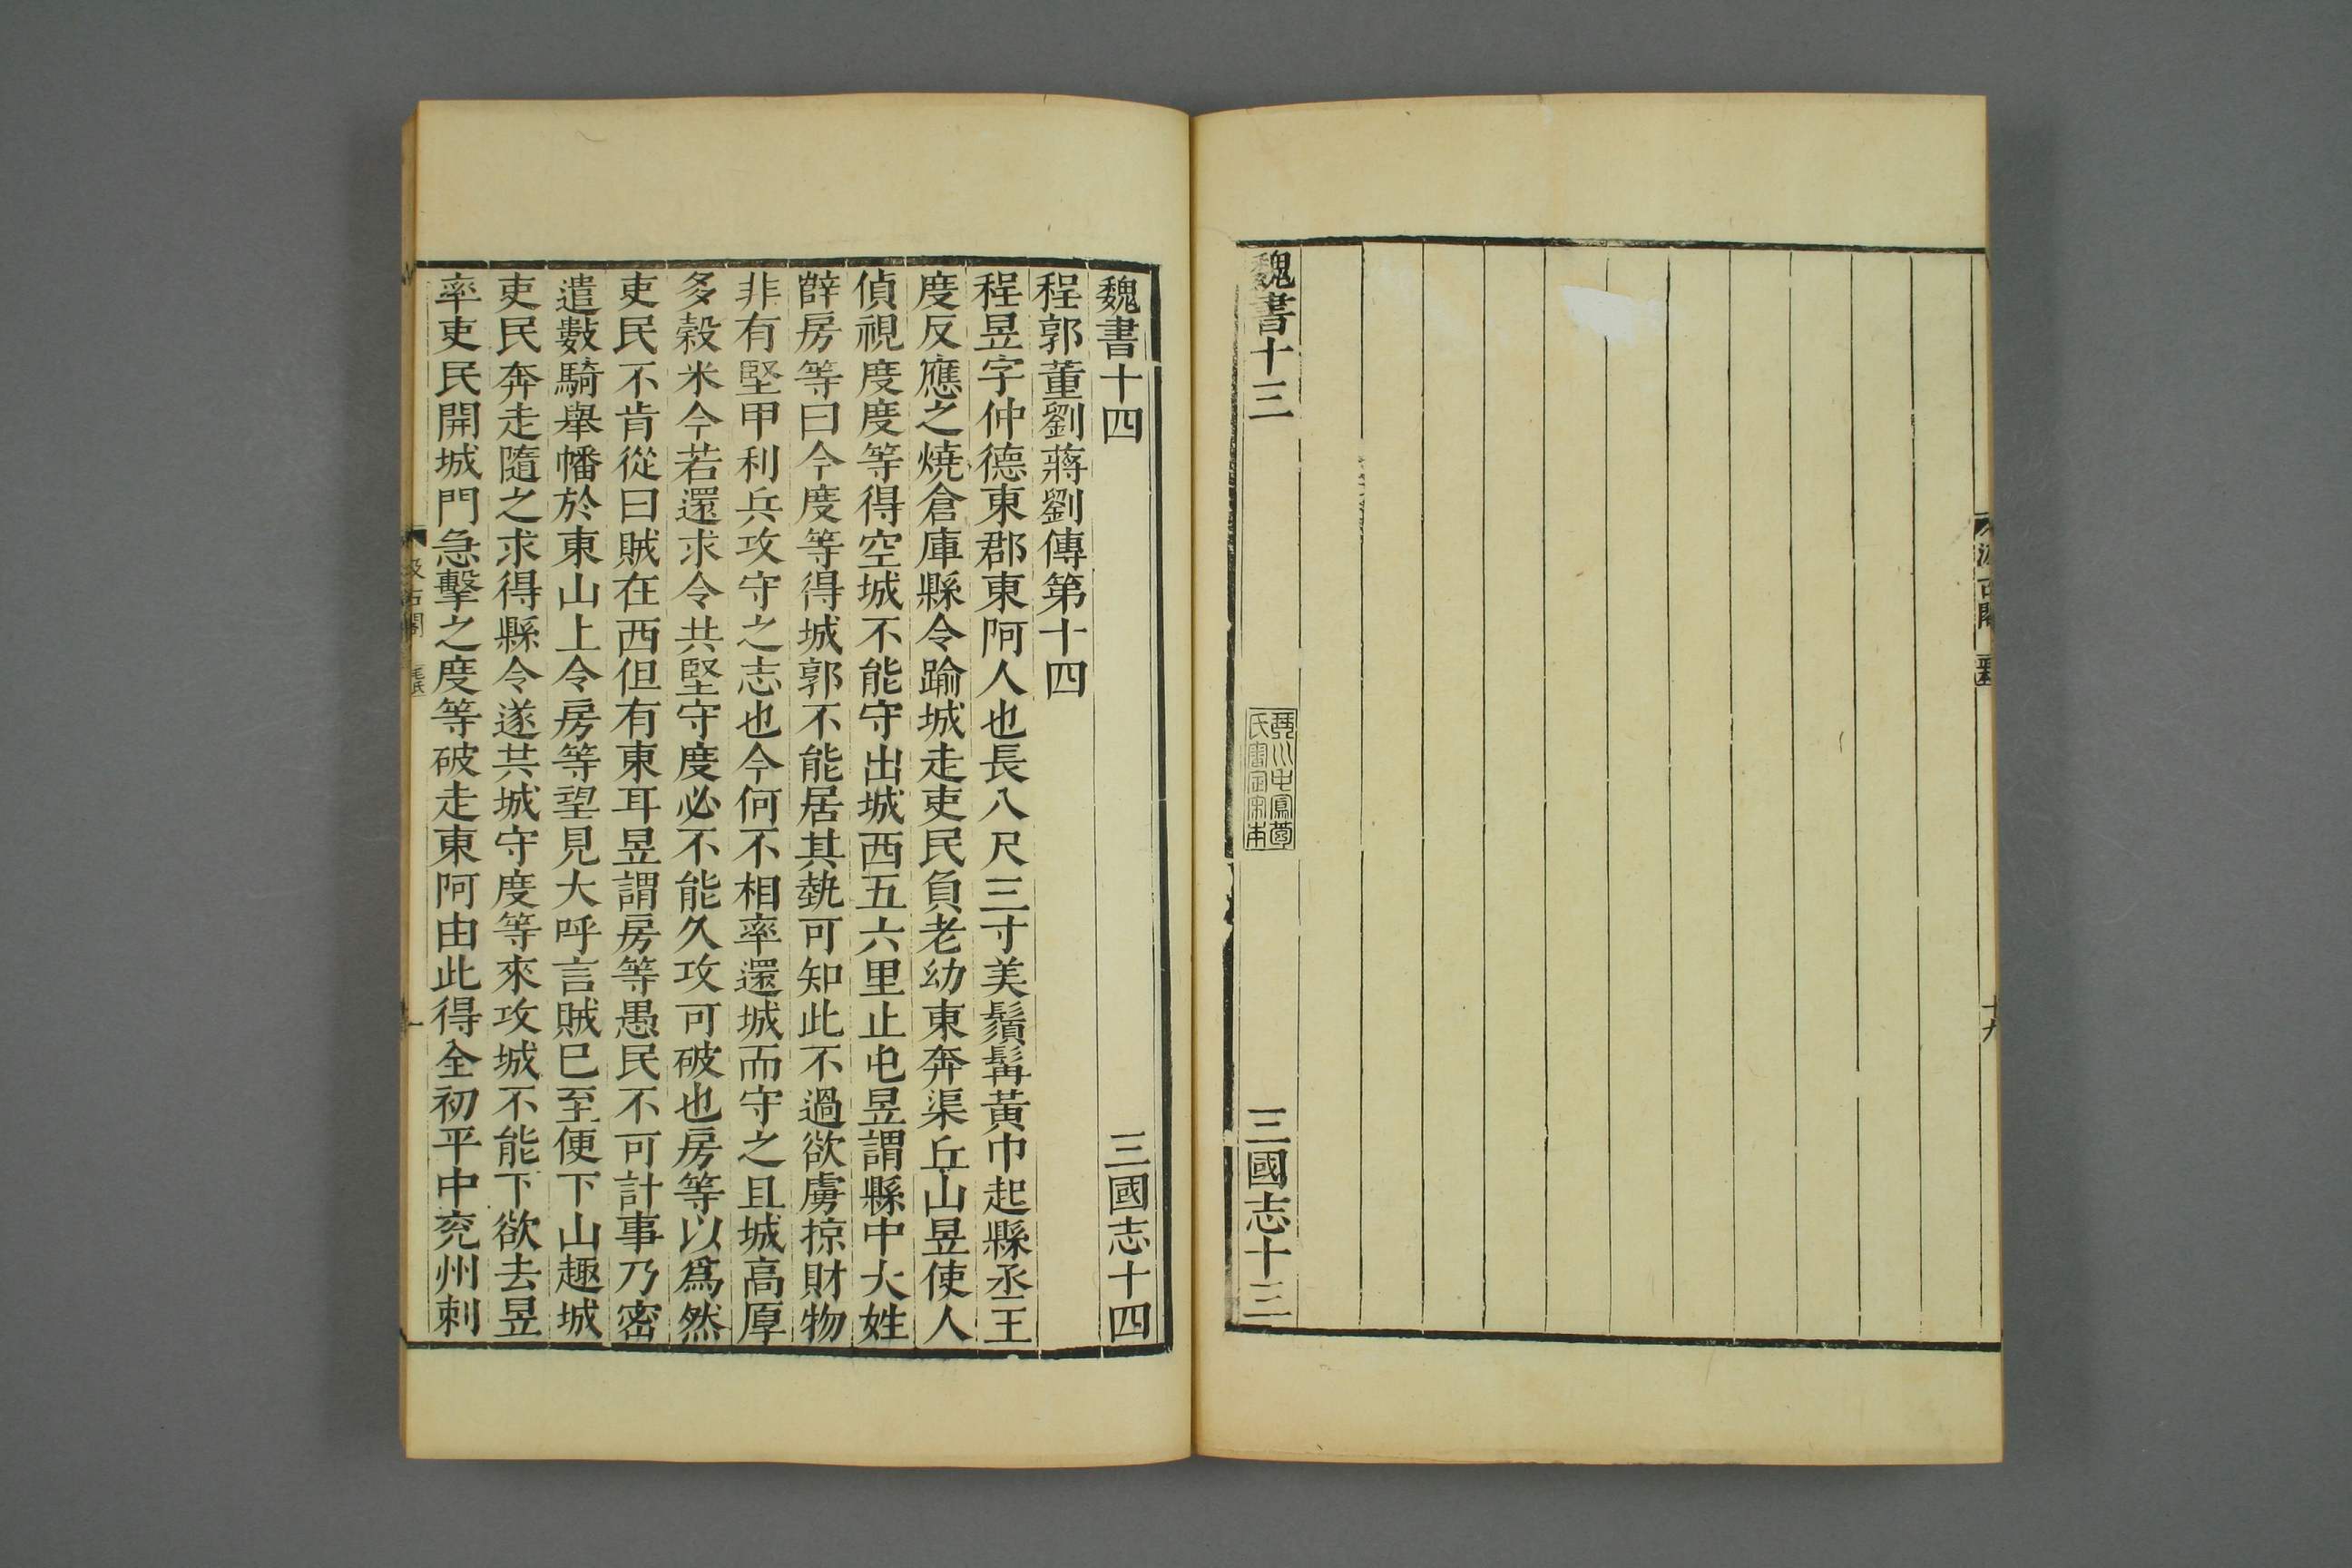 魏書十三 三國志十三
魏書十四 三國志十四
程郭董劉蔣劉傳第十四
程昱字仲德東郡東阿人也長八尺三寸美鬚髯黃巾起縣丞王
度反應之燒倉庫縣令踰城走吏民負老幼東奔渠丘山昱使人
偵視度度等得空城不能守出城西五六里止屯昱謂縣中大姓
薛房等曰今度等得城郭不能居其埶可知此不過欲虜掠財物
非有堅甲利兵攻守之志也今何不相率還城而守之且城高厚
多穀米今若還求令共堅守度必不能久攻可破也房等以爲然
吏民不肯從曰賊在西但有東耳昱謂房等愚民不可計事乃密
遣數騎舉幡於東山上令房等望見大呼言賊巳至便下山趣城
吏民奔走隨之求得縣令遂共城守度等來攻城不能下欲去昱
率吏民開城門急擊之度等破走東阿由此得全初平中兖州刺